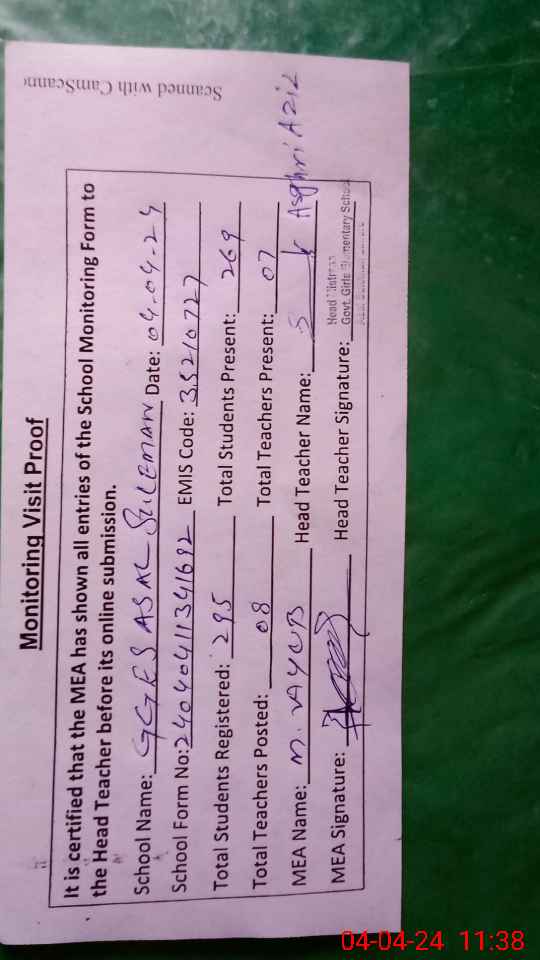 Scanned with CamScann
Monitoring Visit Proof
It is certified that the MEA has shown all entries of the School Monitoring Form to
the Head Teacher before its online submission.
School Name: GGES ASAL SULEMAN Date: 04-04-24
School Form No: 24040411341692 EMIS Code: 35210727
Total Students Registered: 295 Total Students Present: 269
Total Teachers Posted: 08 Total Teachers Present: 07
MEA Name: M. Head Teacher Name: Asghri Aziz
MEA Signature: Head Teacher Signature:
Head
Govt. Girls Elementary School
04-04-24 11:38